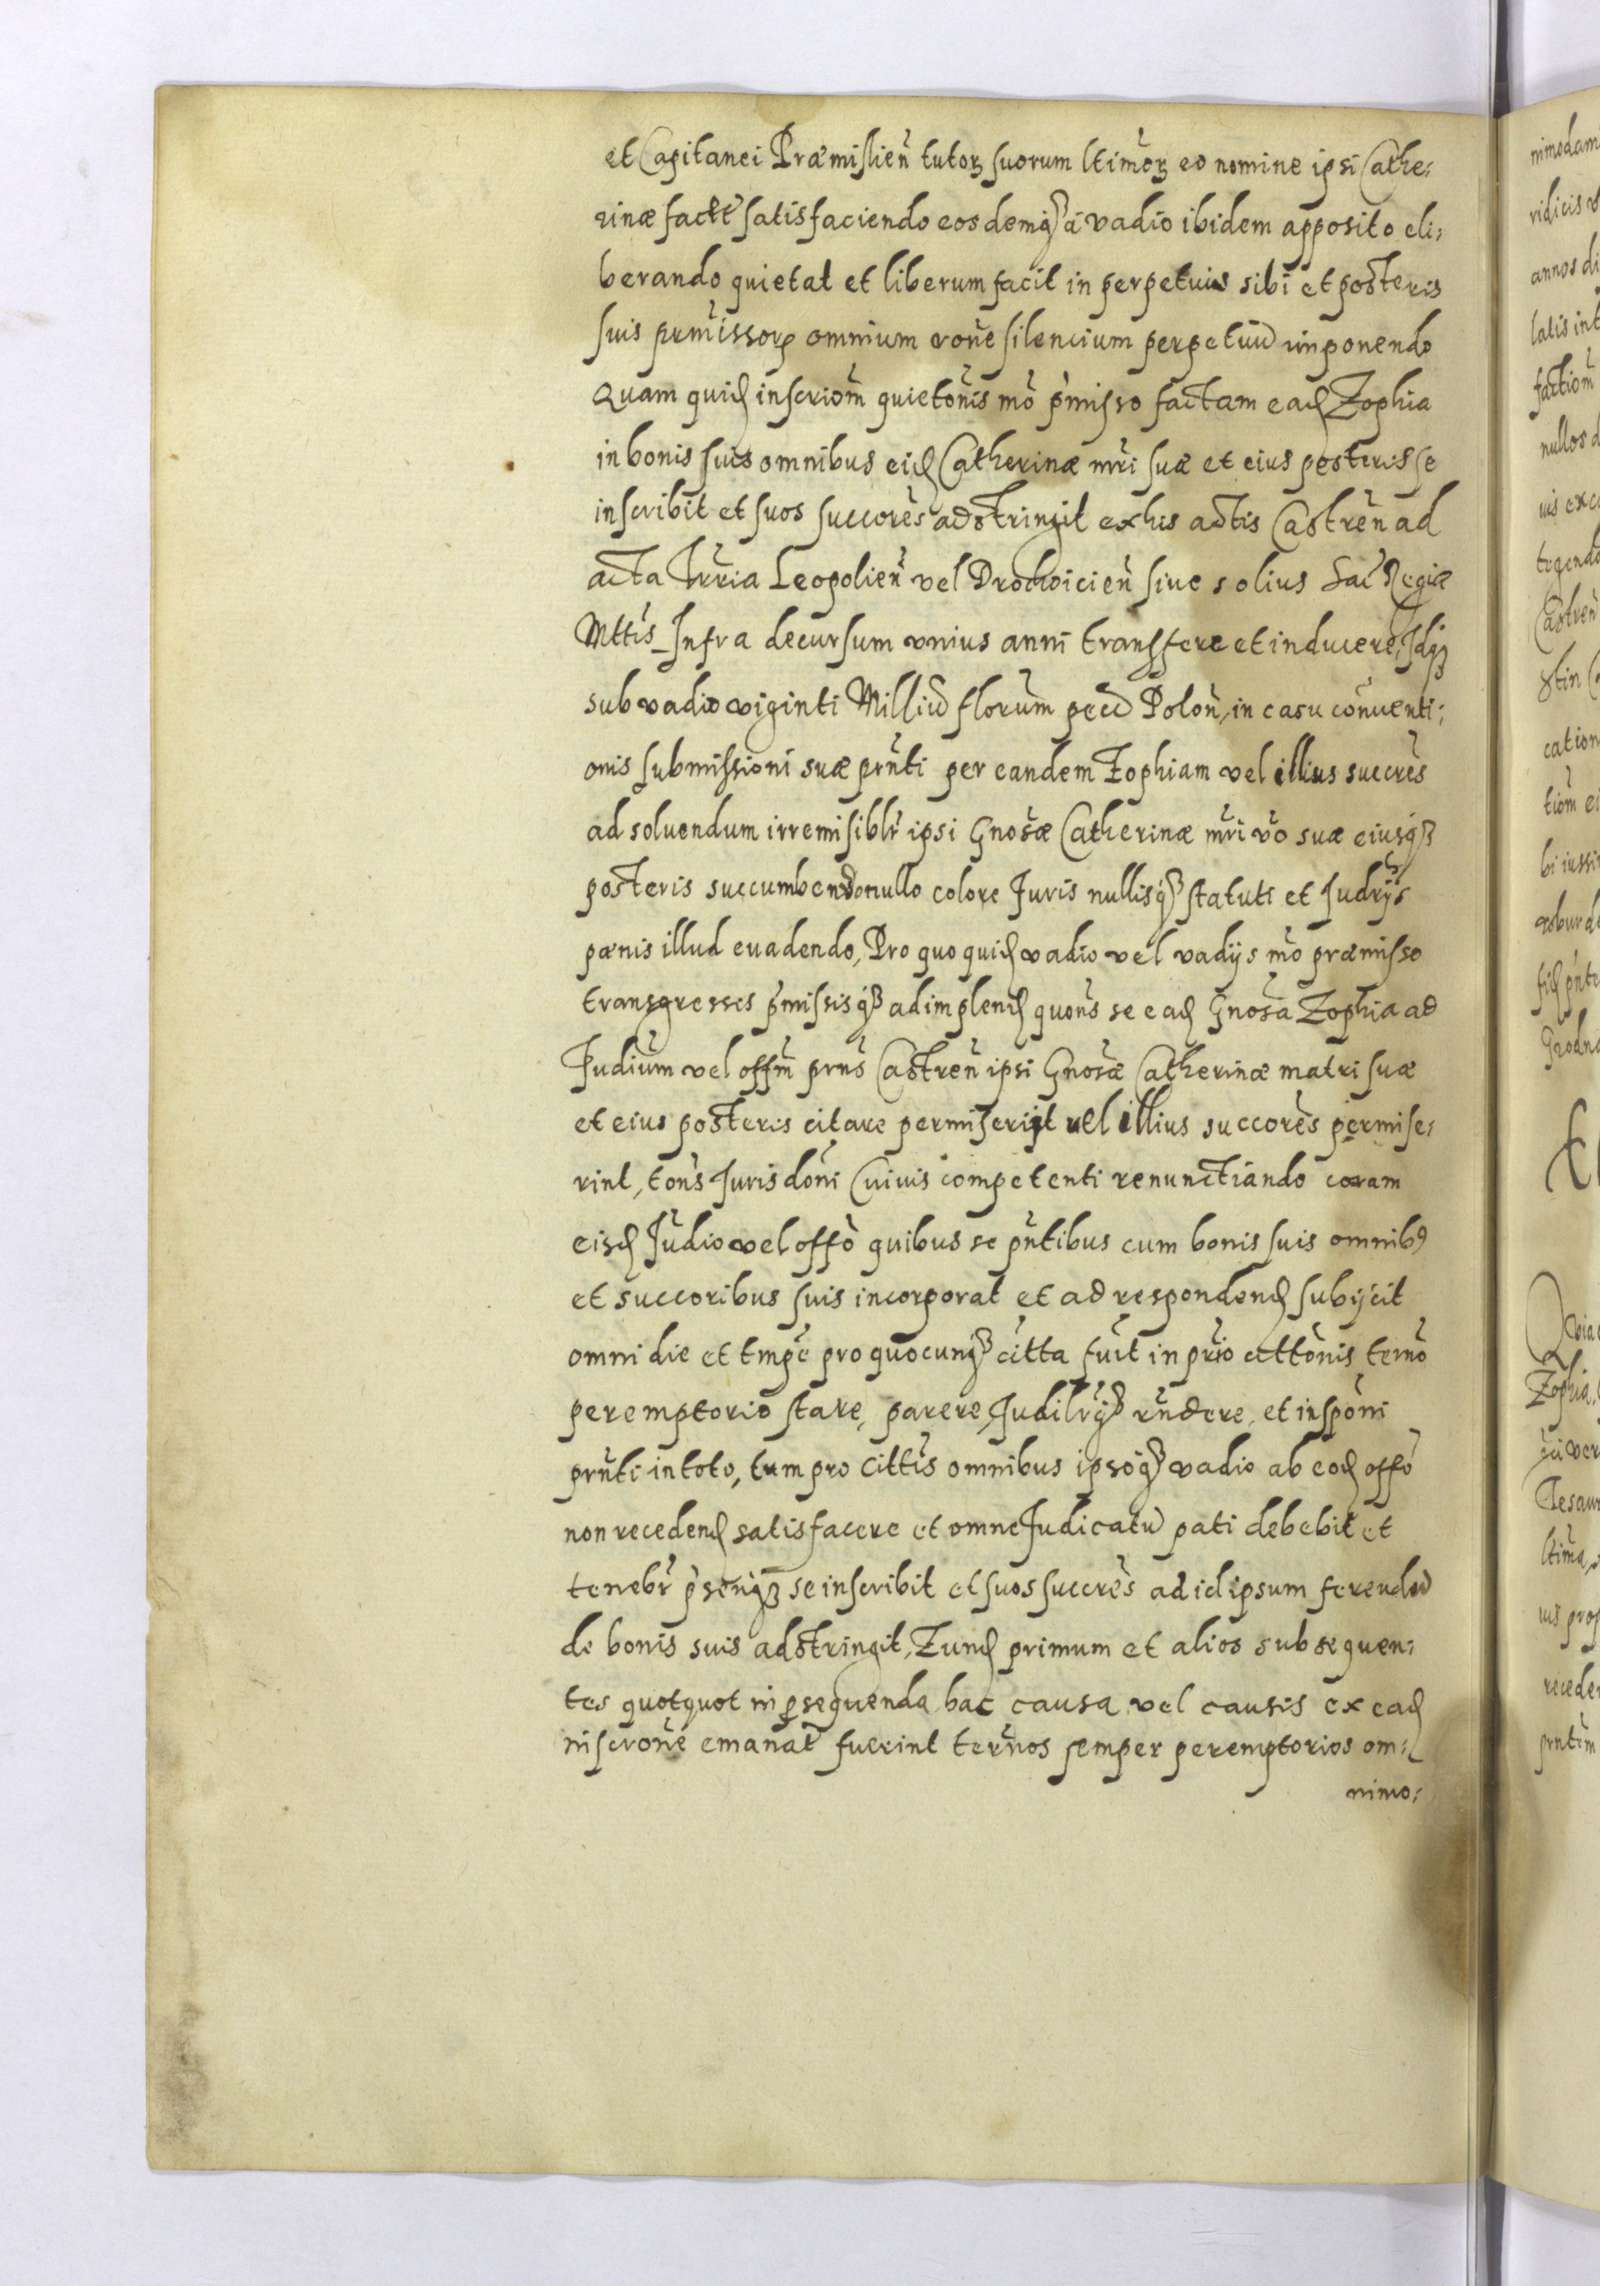 et Capitanei Præmislien̄ tutoꝝ suorum ltimoꝝ eo nomine ipsi Cathe:
rinæ factt̄ satisfaciendo eosdemqꝫ á vadio ibidem apposito eli:
berando quietat et liberum facit in perpetuis sibi et posteris
suis prmissoꝝ omnium rōne silencium perpetuū imponendo
Quam quid̨ inscriom̄ quietōnis mō pmisso factam ead̨ Zophia
in bonis suis omnibus eid̨ Catherinæ mr̄i suæ et eius posteris se
inscribit et suos succorēs adstringit ex his actis Castren̄ ad
acta Trr̄ia Leopolien̄ vel Drohoicien̄ siue solius Sac̄ Regiæ
Mttis̄ Infra decursum vnius anni transfere et inducere, Idqꝫ
sub vadio viginti Milliū florum̄ pecū Polon̄, in casu conuenti:
onis submissioni suæ prn̄ti per eandem Zophiam vel illius succrēs
ad soluendum irremisiblr̄ ipsi Gnosǣ Catherinæ mr̄i vo̅ suæ eiusqꝫ
posteris succumbendo nullo colore Iuris nullisqꝫ statuti et Iudrijs̄
pænis illud euadendo, Pro quo quid̨ vadio vel vadijs mō præmisso
transgresses pmissisqꝫ adimplend̨ quons̄ se ead̨ Gnosā Zophia ad
Iudium̄ vel offm̄ prns̄ Castren̄ ipsi Gnosǣ Catherinæ matri suæ
et eius posteris citare permiserit vel illius succorēs permise:
rint, tons̄ Iurisdoni̅ Cuiuis competenti renunctiando coram
eisd̨ Iudio̅ vel offō quibus se pn̄tibus cum bonis suis omnibꝰ
et succoribus suis incorporat et ad respondend̨ subijcit
omni die et tmpē pro quocunqꝫ citta fuit̄ in prio̅ cittōnis ternō
peremptorio stare, parere, Iudilrqꝫ̄ rn̄dere, et inspōni
prn̄ti in toto, tum pro cittis̄ omnibus ipsoqꝫ vadio ab eod̨ offō
non recedend̨ satisfacere et omne Iudicatū pati debebit et
tenebr̄ psenqꝫ̄ se inscribit et suos succrēs ad id ipsum ferendū
de bonis suis adstringit, Zund̨ primum et alios subsequen:
tes quotquot in ꝑsequenda hac causa vel causis ex ead̨
inscrōne emanat̄ fuerint ternōs semper peremptorios om:
nimo: